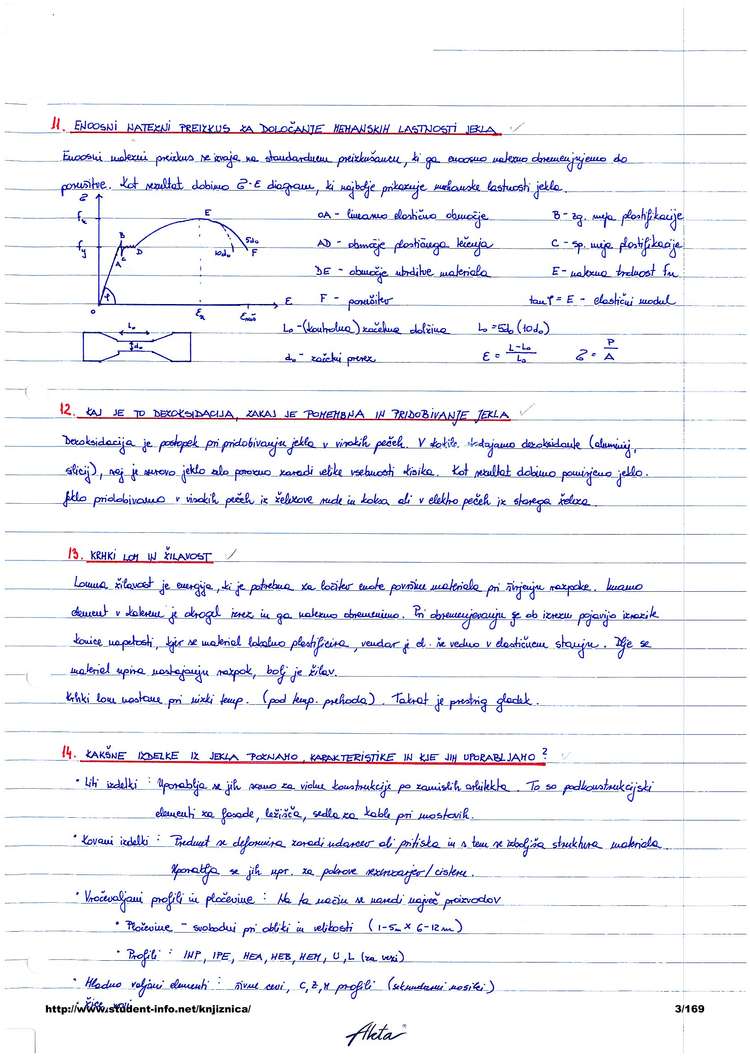 11. ENOOSNI NATEZNI PREIZKUS ZA DOLOČANJE MEHANSKIH LASTNOSTI JEKLA
Enoosni natezni preizkus se izvaja na standardnem preizkušancu, ki ga enoosno natezno obremenjujemo do
porušitve. Kot rezultat dobimo σ-ε diagram, ki najbolje prikazuje mehanske lastnosti jekla.
σ
fu
fy
E
B
C
A
D
5d₀
10d₀
F
φ
0
εu
εmax
ε
OA - linearno elastično območje
B - zg. meja plastifikacije
AD - območje plastičnega tečenja
C - sp. meja plastifikacije
DE - območje utrditve materiala
E - natezna trdnost fu
F - porušitev
tanφ = E - elastični modul
L₀
d₀
L₀ - (kontrolna) začetna dolžina
L₀ = 5d₀ (10d₀)
d₀ - začetni prerez
ε = L-L₀ / L₀
σ = P / A
12. KAJ JE TO DEZOKSIDACIJA, ZAKAJ JE POMEMBNA IN PRIDOBIVANJE JEKLA
Dezoksidacija je postopek pri pridobivanju jekla v visokih pečeh. V kokile dodajamo dezoksidante (aluminij,
silicij), saj je surovo jeklo zelo porozno zaradi velike vsebnosti kisika. Kot rezultat dobimo pomirjeno jeklo.
Jeklo pridobivamo v visokih pečeh iz železove rude in koksa ali v elektro pečeh iz starega železa.
13. KRHKI LOM IN ŽILAVOST
Lomna žilavost je energija, ki je potrebna za ločitev enote površine materiala pri širjenju razpoke. Imamo
element v katerem je okrogel izrez in ga natezno obremenimo. Pri obremenjevanju se ob izrezu pojavijo izrazite
konice napetosti, kjer se material lokalno plastificira, vendar je d. še vedno v elastičnem stanju. Dlje se
material upira nastajanju razpok, bolj je žilav.
Krhki lom nastane pri nizki temp. (pod temp. prehoda). Takrat je prestrig gladek.
14. KAKŠNE IZDELKE IZ JEKLA POZNAMO, KARAKTERISTIKE IN KJE JIH UPORABLJAMO?
• Liti izdelki: Uporablja se jih samo za vidne konstrukcije po zamislih arhitekta. To so podkonstrukcijski
elementi za fasade, ležišča, sedla za kable pri mostovih.
• Kovani izdelki: Predmet se deformira zaradi udarcev ali pritiska in s tem se izboljša struktura materiala.
Uporablja se jih npr. za pokrove rezervoarjev / cistern.
• Vročevaljani profili in pločevine: Na ta način se naredi največ proizvodov
• Pločevine - svobodni pri obliki in velikosti (1-5m × 6-12m)
• Profili: INP, IPE, HEA, HEB, HEM, U, L (za vezi)
• Hladno valjani elementi: šivne cevi, C, Z, M profili (sekundarni nosilci)
http://www.student-info.net/knjiznica/
3/169
Akta